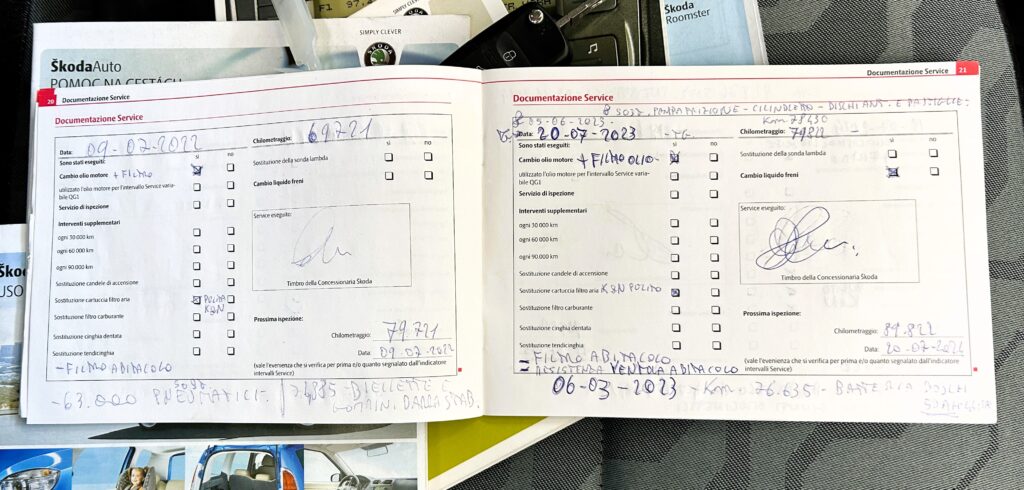 F1 97.
SIMPLY CLEVER
ŠKODA
Škoda
Roomster
ŠkodaAuto
POMOC NA CESTÁCH
20 Documentazione Service
Documentazione Service
Data: 09-07-2022
Chilometraggio: 69.721
Sono stati eseguiti: sì no
sì no
Cambio olio motore + FILTRO
utilizzato l'olio motore per l'intervallo Service varia-
bile QG1
Servizio di ispezione
Sostituzione della sonda lambda
Cambio liquido freni
Interventi supplementari
ogni 30 000 km
ogni 60 000 km
ogni 90.000 km
Sostituzione candele di accensione
Sostituzione cartuccia filtro aria PULITA
K&N
Sostituzione filtro carburante
Sostituzione cinghia dentata
Sostituzione tendicinghia
- FILTRO ABITACOLO
Service eseguito:
Timbro della Concessionaria Škoda
Prossima ispezione:
Chilometraggio: 79.721
Data: 09-07-2022
(vale l'evenienza che si verifica per prima e/o quanto segnalato dall'indicatore
intervalli Service)
SOST.
-63.000 PNEUMATICI.
- BIELLETTE E
Documentazione Service 21
Documentazione Service
SOST. POMPA FRIZIONE - CILINDRO - DISCHI ANT. E PASTIGLIE.
05-06-2023 - Km 78430
Data: 20-07-2023 - TG.
Chilometraggio: 79822
Sono stati eseguiti: sì no
sì no
Cambio olio motore + FILTRO OLIO
utilizzato l'olio motore per l'intervallo Service varia-
bile QG1
Servizio di ispezione
Sostituzione della sonda lambda
Cambio liquido freni
Interventi supplementari
ogni 30 000 km
ogni 60 000 km
ogni 90.000 km
Sostituzione candele di accensione
Sostituzione cartuccia filtro aria K&N PULITO
Sostituzione filtro carburante
Sostituzione cinghia dentata
Sostituzione tendicinghia
- FILTRO ABITACOLO
- RESISTENZA VENTOLA ABITACOLO
Service eseguito:
Timbro della Concessionaria Škoda
Prossima ispezione:
Chilometraggio: 89.822
Data: 20-07-2024
(vale l'evenienza che si verifica per prima e/o quanto segnalato dall'indicatore
intervalli Service)
06-03-2023 - Km 76.635 - BATTERIA BOSCH
Ško
USO